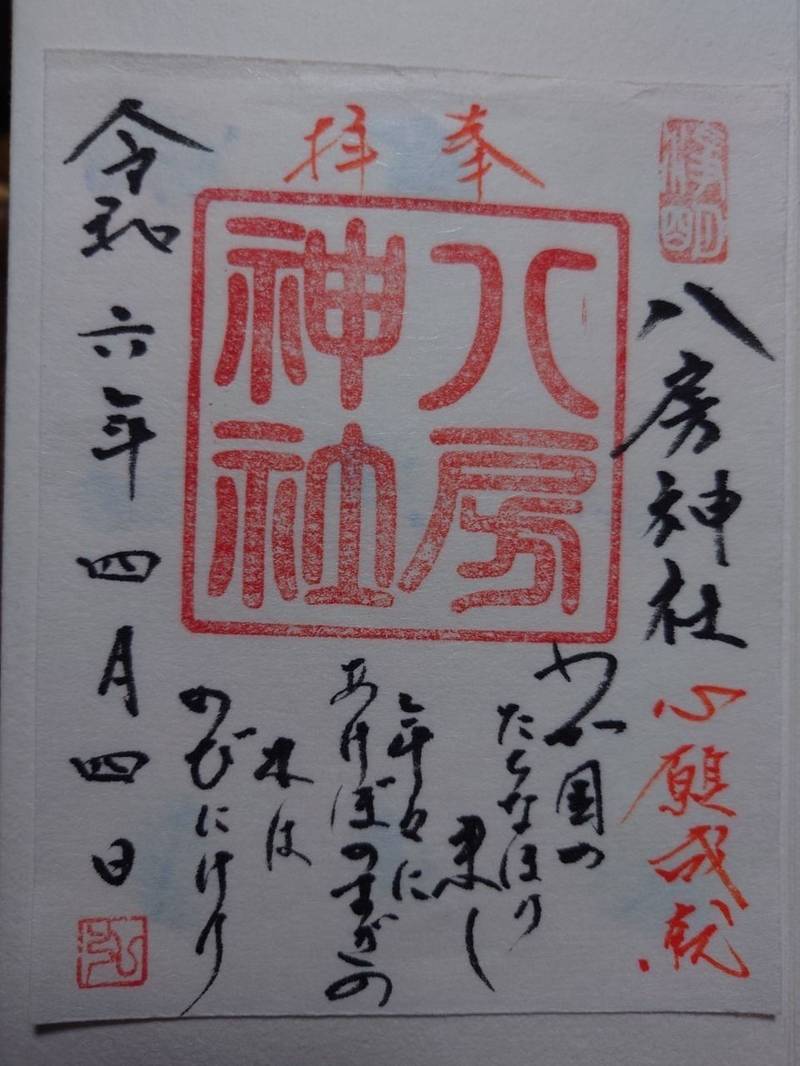 八房神社
心願成就
奉拝
八房
神社
わが国の
たちなほり
来し
年々に
あけぼのすぎの
木は
のびにけり
令和六年四月四日